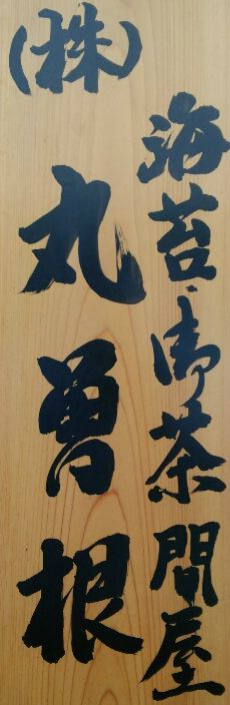 海苔・御茶問屋
(株)丸曽根